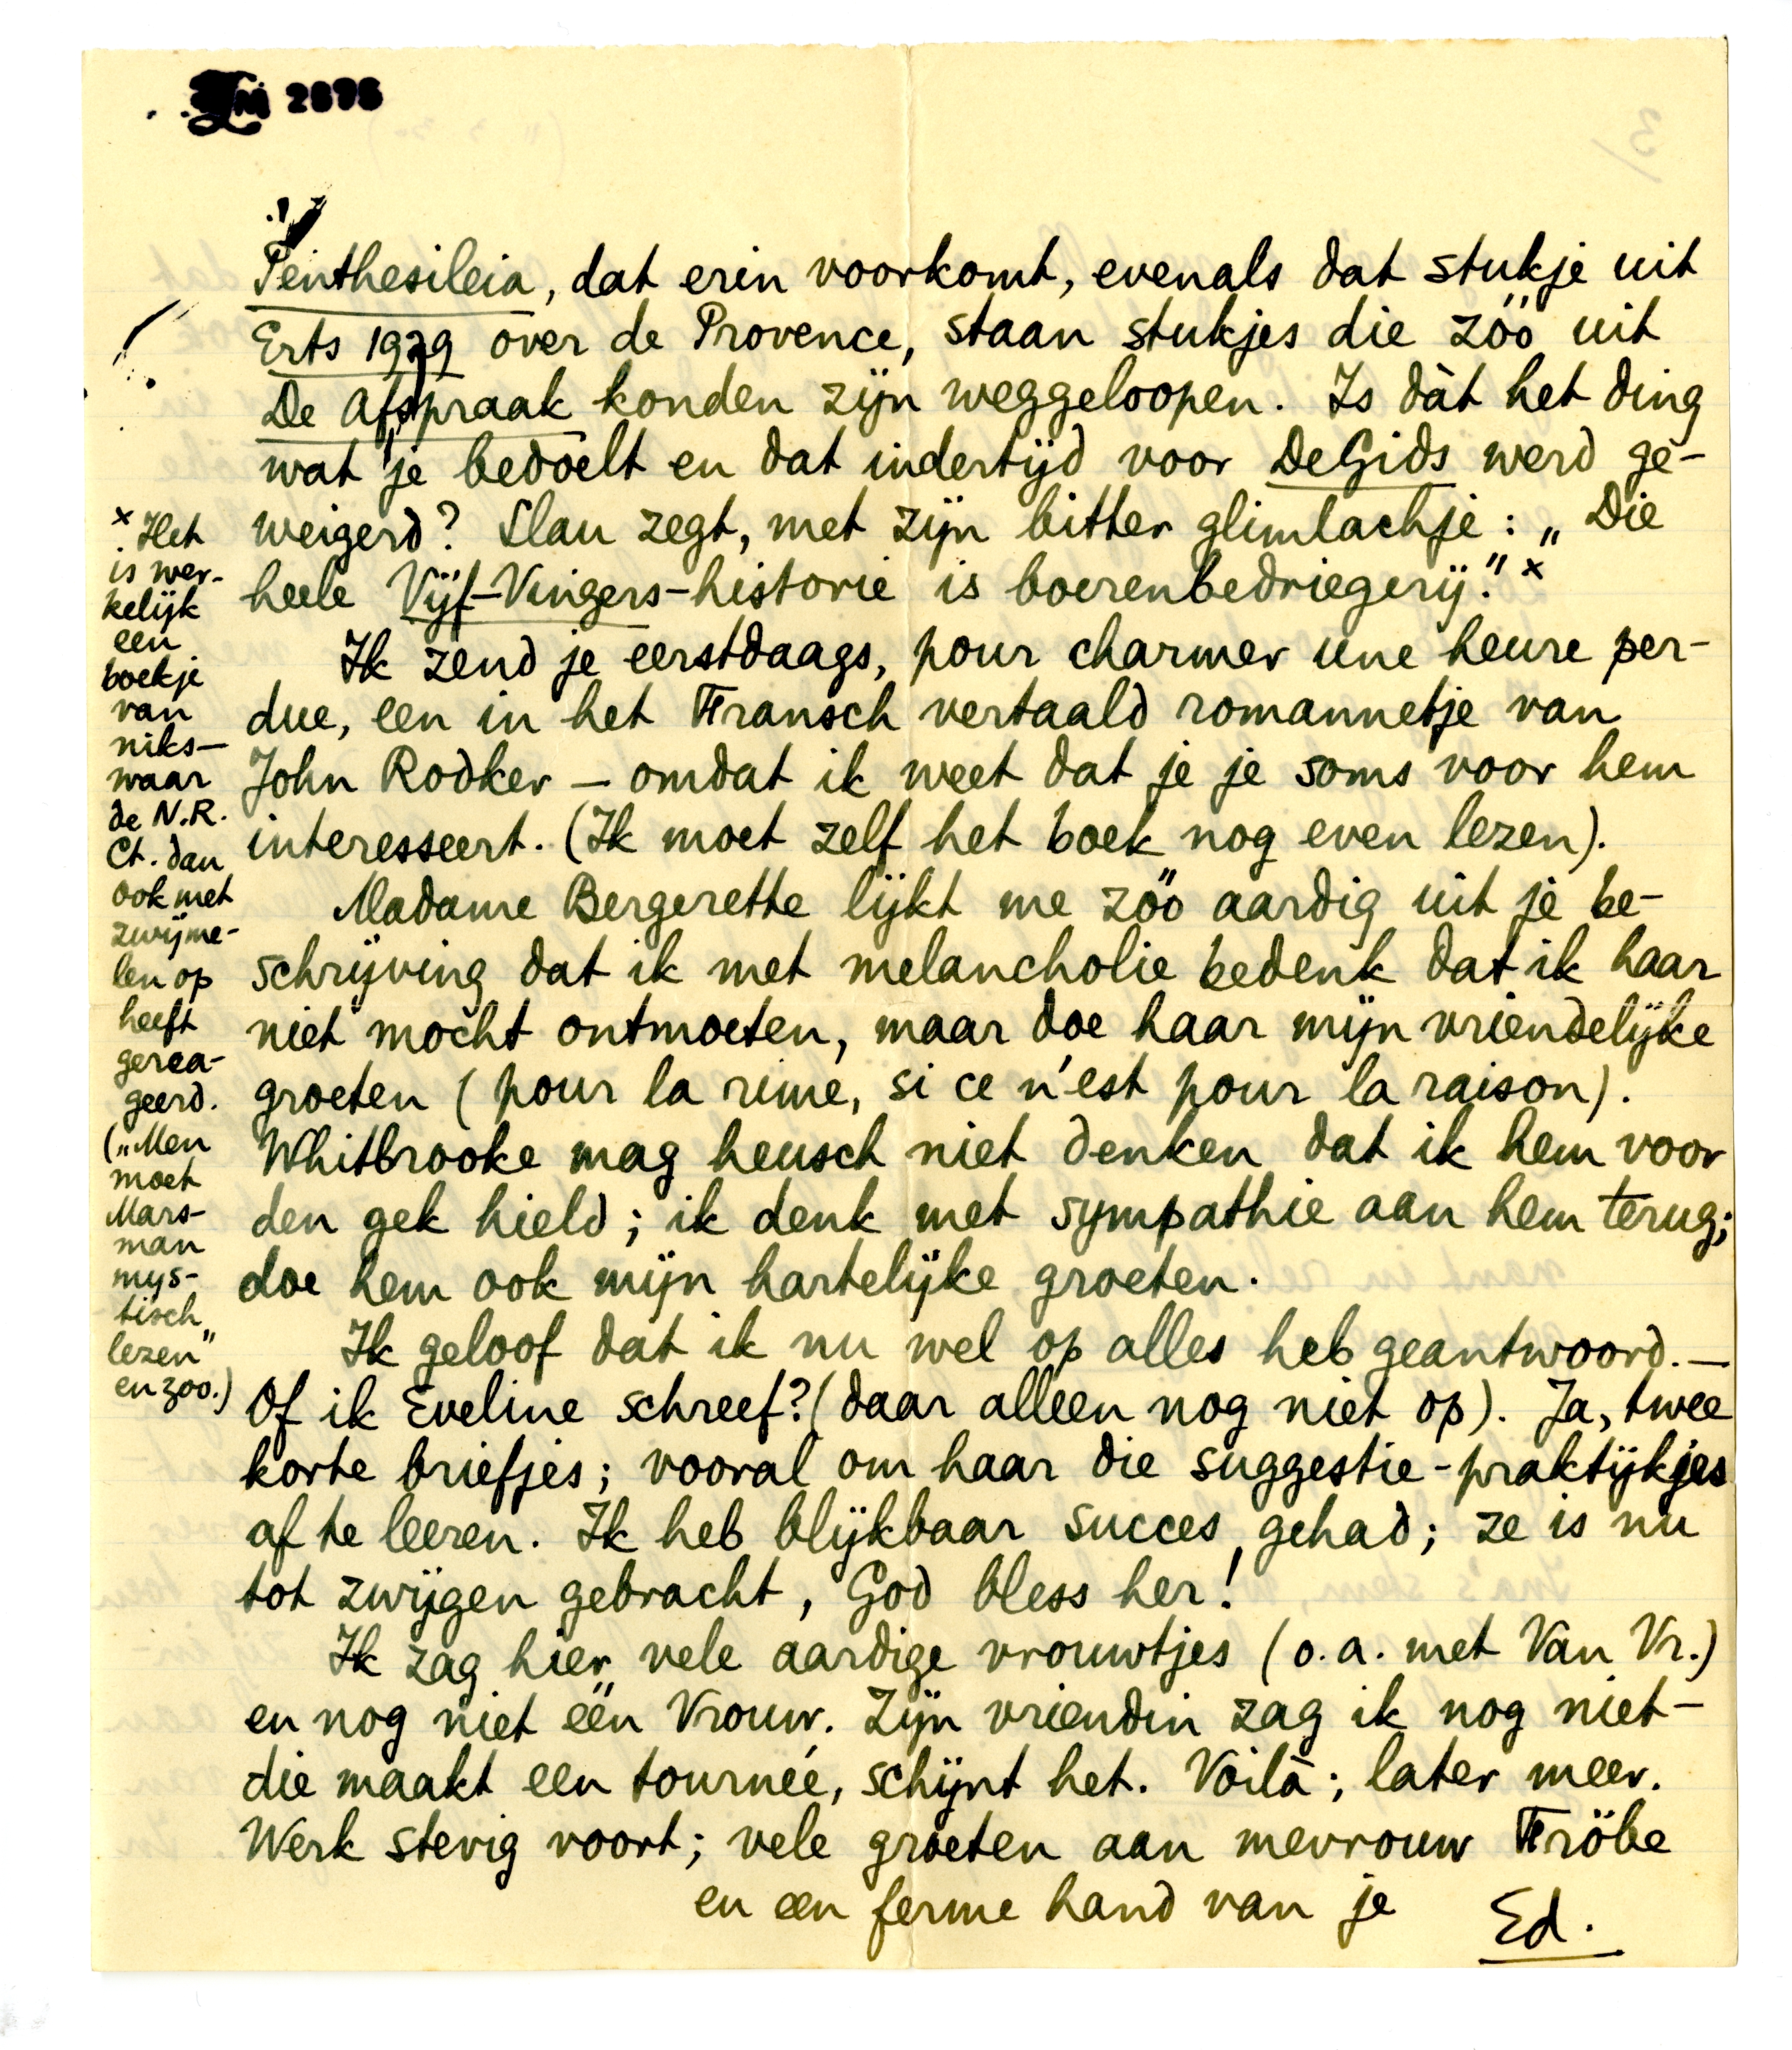 LM 2676
Penthesileia, dat erin voorkomt, evenals dat stukje uit
Erts 1929 over de Provence, staan stukjes die zóó uit
De Afspraak konden zijn weggeloopen. Is dàt het ding
wat je bedoelt en dat indertijd voor De Gids werd ge-
weigerd? Slau zegt, met zijn bitter glimlachje: „Die
heele Vijf-Vingers-historie is boerenbedriegerij." x
Ik zend je eerstdaags, pour charmer une heure per-
due, een in het Fransch vertaald romannetje van
John Rodker – omdat ik weet dat je je soms voor hem
interesseert. (Ik moet zelf het boek nog even lezen).
Madame Bergerette lijkt me zóó aardig uit je be-
schrijving dat ik met melancholie bedenk dat ik haar
niet mocht ontmoeten, maar doe haar mijn vriendelijke
groeten (pour la rime, si ce n'est pour la raison).
Whitbrooke mag heusch niet denken dat ik hem voor
den gek hield; ik denk met sympathie aan hem terug;
doe hem ook mijn hartelijke groeten.
Ik geloof dat ik nu wel op alles heb geantwoord. —
Of ik Eveline schreef? (daar alleen nog niet op). Ja, twee
korte briefjes; vooral om haar die suggestie-praktijkjes
af te leeren. Ik heb blijkbaar succes gehad; ze is nu
tot zwijgen gebracht, God bless her!
Ik zag hier vele aardige vrouwtjes (o.a. met Van Vr.)
en nog niet één Vrouw. Zijn vriendin zag ik nog niet –
die maakt een tournée, schijnt het. Voilà; later meer.
Werk stevig voort; vele groeten aan mevrouw Fröbe
en een ferme hand van je
Ed.
x Het
is wer-
kelijk
een
boekje
van
niks –
waar
de N.R.
Ct. dan
ook met
zwijme-
len op
heeft
gerea-
geerd.
(„Men
moet
Mars-
man
mys-
tisch
lezen"
en zoo.)